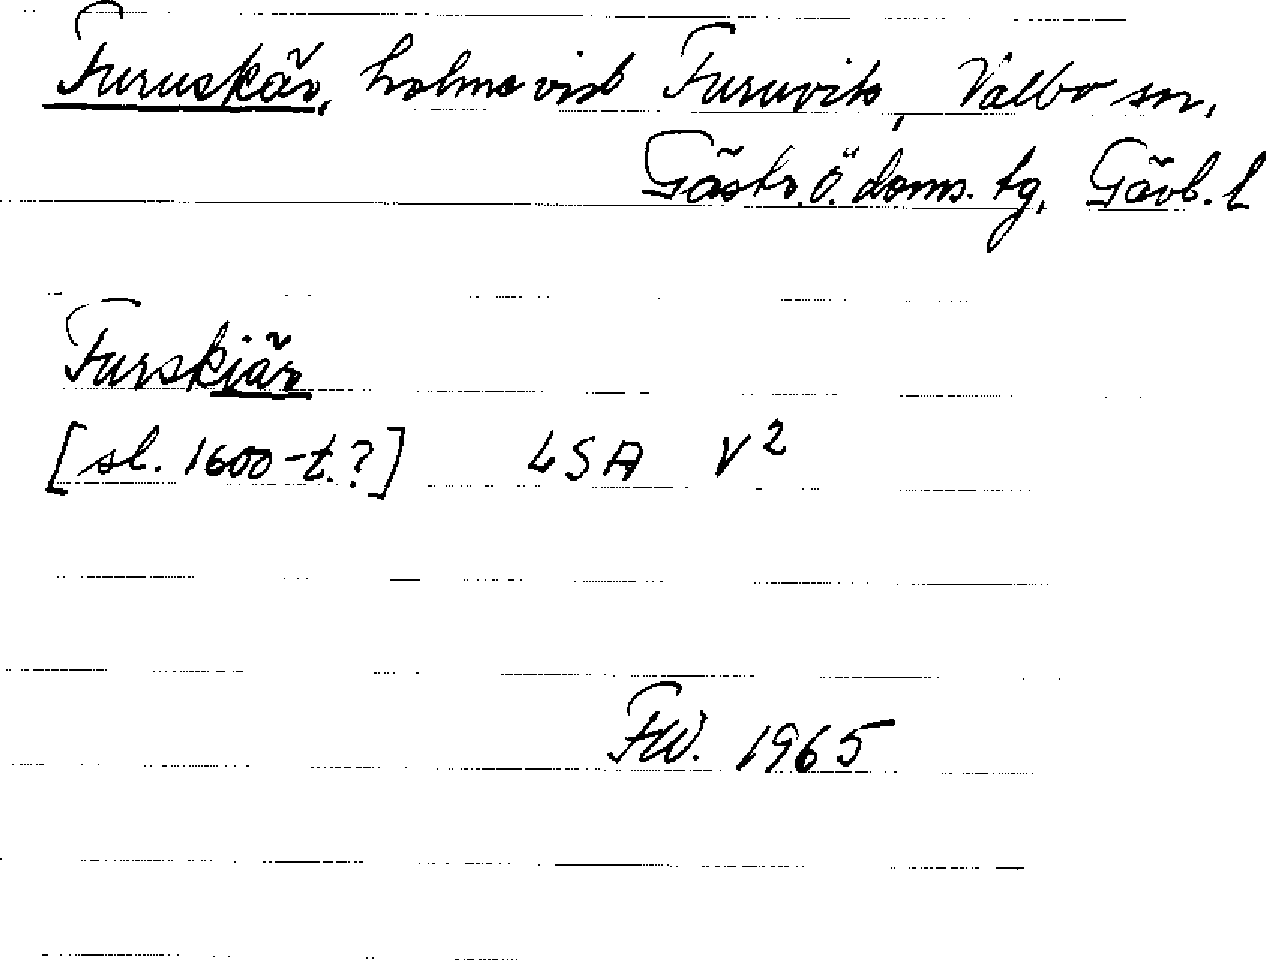 Furuskär, holme vid Furuvik, Valbo sn,
Gästr. Ö. doms. tg, Gävb. l
Furskiär
[sl. 1600-t.?] LSA V2
FW. 1965